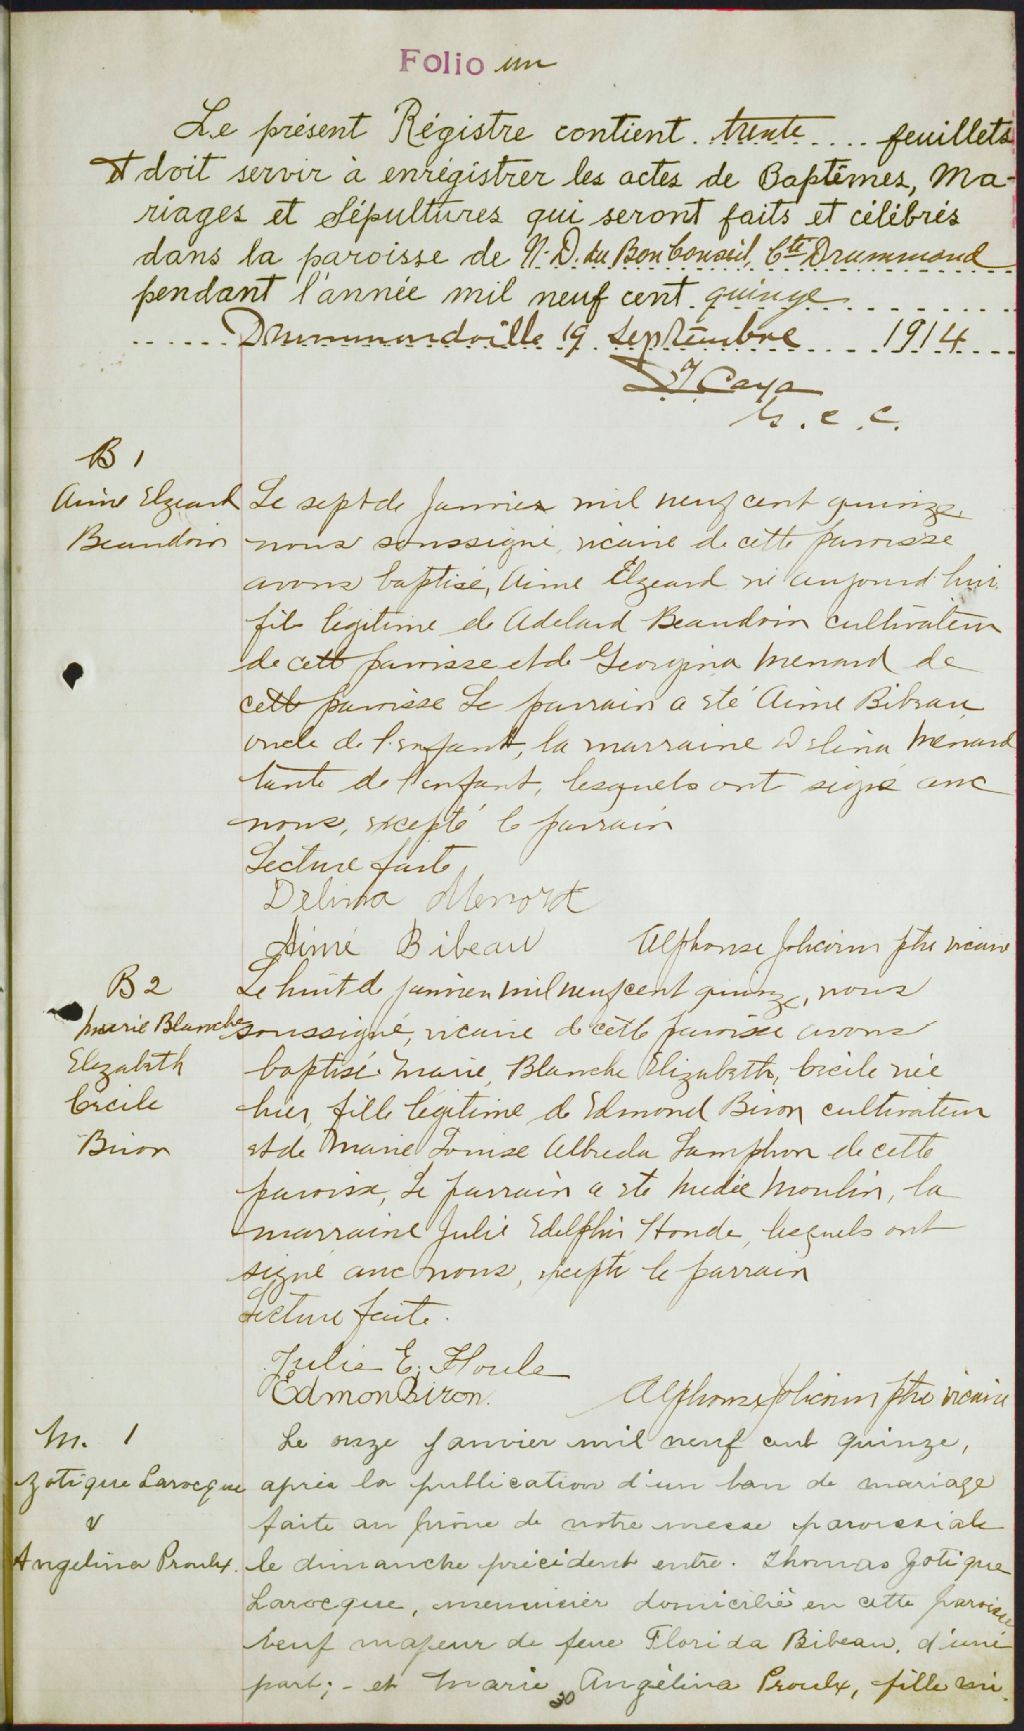 Folio un
Le présent Régistre contient trente feuillets
et doit servir à enrégistrer les actes de Baptêmes, Ma-
riages et Sépultures qui seront faits et célébrés
dans la paroisse de N. D. du Bon Conseil, Cté Drummond
pendant l'année mil neuf cent quinze
Drummondville 19 Septembre 1914
Caya
c. c.
B 1
Aimé Elzeard
Beaudoin
Le sept de Janvier mil neuf cent quinze
nous soussigné, vicaire de cette paroisse
avons baptisé, Aimé Elzeard né aujourd'hui
fils légitime de Adelard Beaudoin cultivateur
de cette paroisse et de Georgina Menard de
cette paroisse Le parrain a été Aimé Bibeau
oncle de l'enfant, la marraine Delina Menard
tante de l'enfant, lesquels ont signé avec
nous, excepté le parrain
Lecture faite
Delina Menard
Aimé Bibeau
Alphonse ptre vicaire
B 2
Marie Blanche
Elizabeth
Cecile
Biron
Le huit de janvier mil neuf cent quinze, nous
soussigné, vicaire de cette paroisse avons
baptisé Marie, Blanche Elizabeth, Cecile née
hier, fille légitime de Edmond Biron cultivateur
et de Marie Louise Albreda Lamphron de cette
paroisse, Le parrain a été Médée Moulin, la
marraine Julie Edelphin Houde, lesquels ont
signé avec nous, excepté le parrain
Lecture faite.
Julie E. Houle
Edmon Biron.
Alphonse ptre vicaire
M. 1
Zotique Larocque
v
Angelina Proulx.
Le onze Janvier mil neuf cent quinze,
après la publication d'un ban de mariage
faite au prône de notre messe paroissiale
le dimanche précédent entre. Thomas Zotique
Larocque, menuisier domicilié en cette paroisse
veuf majeur de feue Florida Bibeau, d'une
part; - et Marie Angélina Proulx, fille mi-
30